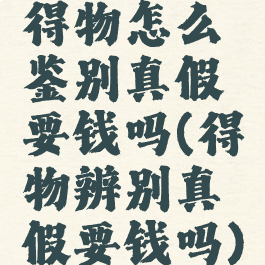 得物怎么
鉴别真假
要钱吗(得
物辨别真
假要钱吗)